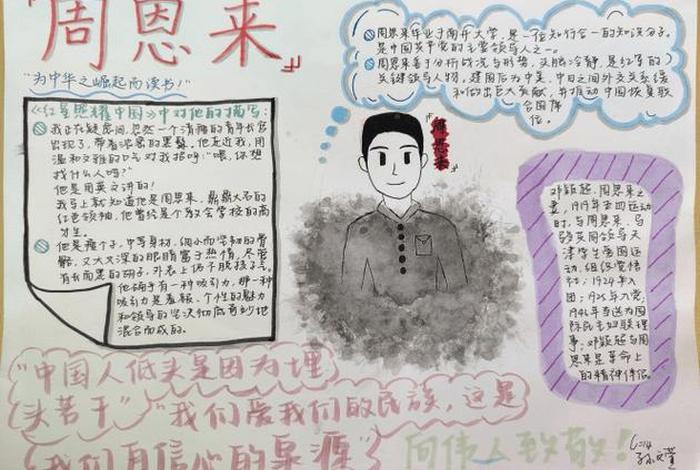 周恩来
"为中华之崛起而读书!"
《红星照耀中国》中对他的描写:
我正在疑房间,忽然一个清瘦的青年长官
出现了,带着浓密的黑髯。他走近我,用
温和文雅的口气对我招呼:"喂,你想
找什么人吗?"
他是用英文讲的!
我马上就知道他是周恩来,鼎鼎大名的
红色领袖,他曾经是个教会学校的高
才生。
他是瘦个子,中等身材,细小而坚韧的骨
骼,又大又深的眼睛富于热情,尽管
有长而黑的胡子,外表上仍不脱孩子气。
他确乎有一种吸引力,那一种
吸引力是羞赧、个性的魅力
和领导的坚决彻底奇妙地
混合而成的。
周恩来毕业于南开大学,是一位知行合一的知识分子。
是中国共产党的主要领导人之一。
周恩来善于分析战况与形势,头脑冷静,是红军的
关键领导人物。建国后为中美、中日之间外交关系缓
和做出巨大贡献,并推动中国恢复联
合国席
位。
周恩来
邓颖超,周恩来之
妻,1919年五四运动
时,与周恩来、马
骏等共同领导天
津学生爱国运
动,组织觉悟
社;1924年入
团;1925年入党;
1946年当选为国
际民主妇联理
事;邓颖超与周
恩来是革命上
的精神伴侣。
"中国人低头是因为埋
头苦干" "我们爱我们的民族,这是
我们自信心的泉源"
向伟人致敬!